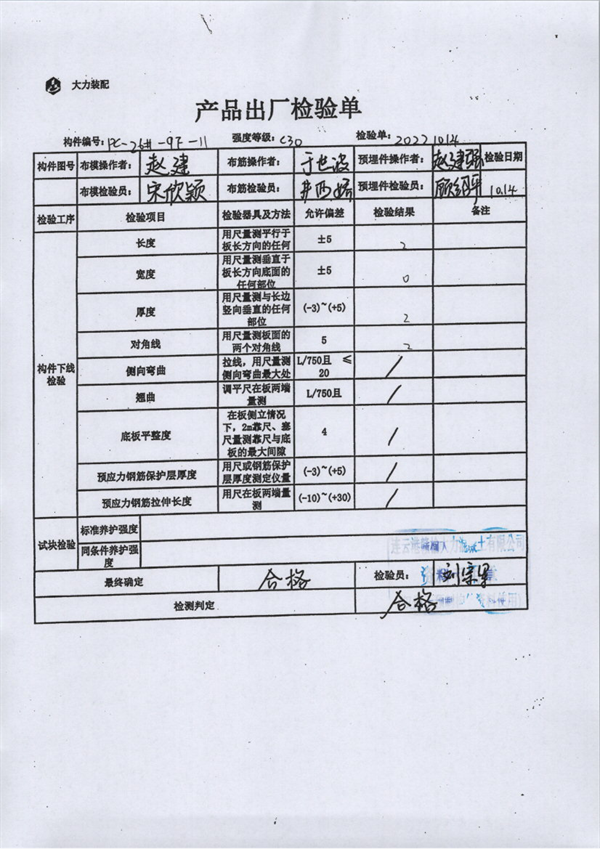 大力装配
产品出厂检验单
构件编号: PC-26#-9F-11 强度等级: C30 检验单: 2022 10.14
构件图号 布模操作者: 赵建 布筋操作者: 预埋件操作者: 赵建强 检验日期
布模检验员: 宋欣颖 布筋检验员: 预埋件检验员: 10.14
检验工序 检验项目 检验器具及方法 允许偏差 检验结果 备注
构件下线检验
长度 用尺量测平行于板长方向的任何 ±5 2
宽度 用尺量测垂直于板长方向底面的任何部位 ±5 0
厚度 用尺量测与长边竖向垂直的任何部位 (-3)~(+5) 2
对角线 用尺量测板面的两个对角线 5 2
侧向弯曲 拉线，用尺量测侧向弯曲最大处 L/750且 ≤20 /
翘曲 调平尺在板两端量测 L/750且 /
底板平整度 在板侧立情况下，2m靠尺、塞尺量测靠尺与底板的最大间隙 4 /
预应力钢筋保护层厚度 用尺或钢筋保护层厚度测定仪量 (-3)~(+5) /
预应力钢筋拉伸长度 用尺在板两端量测 (-10)~(+30) /
试块检验 标准养护强度
同条件养护强度
最终确定 合格 检验员:
检测判定 合格